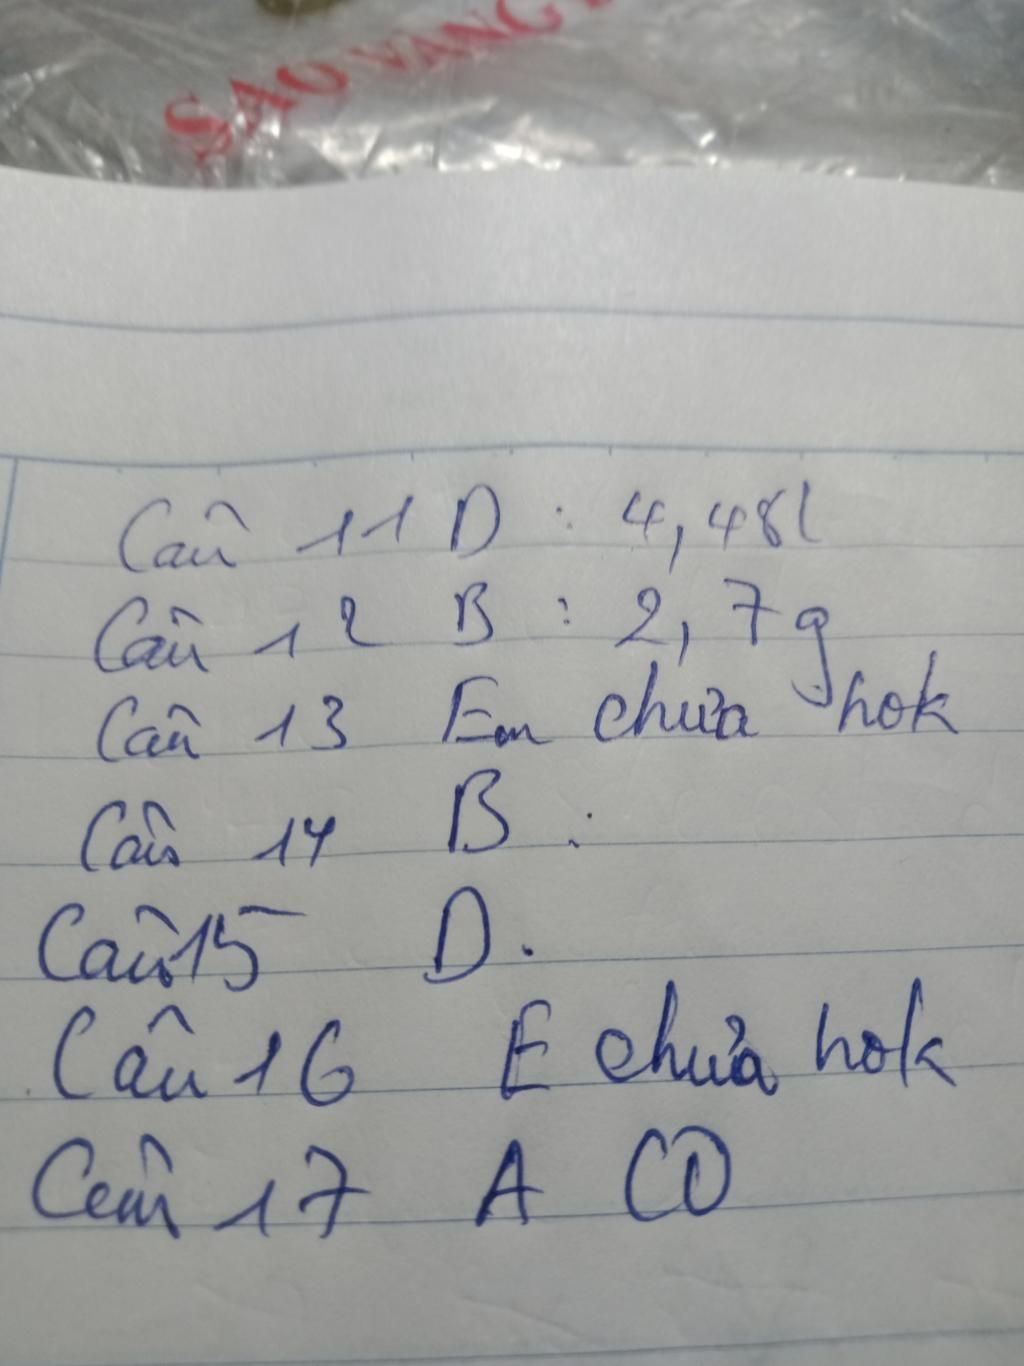 SAO VANG
Câu 11 D : 4,48l
Câu 12 B : 2,7g
Câu 13 Em chưa hok
Câu 14 B :
Câu 15 D.
Câu 16 E chưa hok
Câu 17 A CO